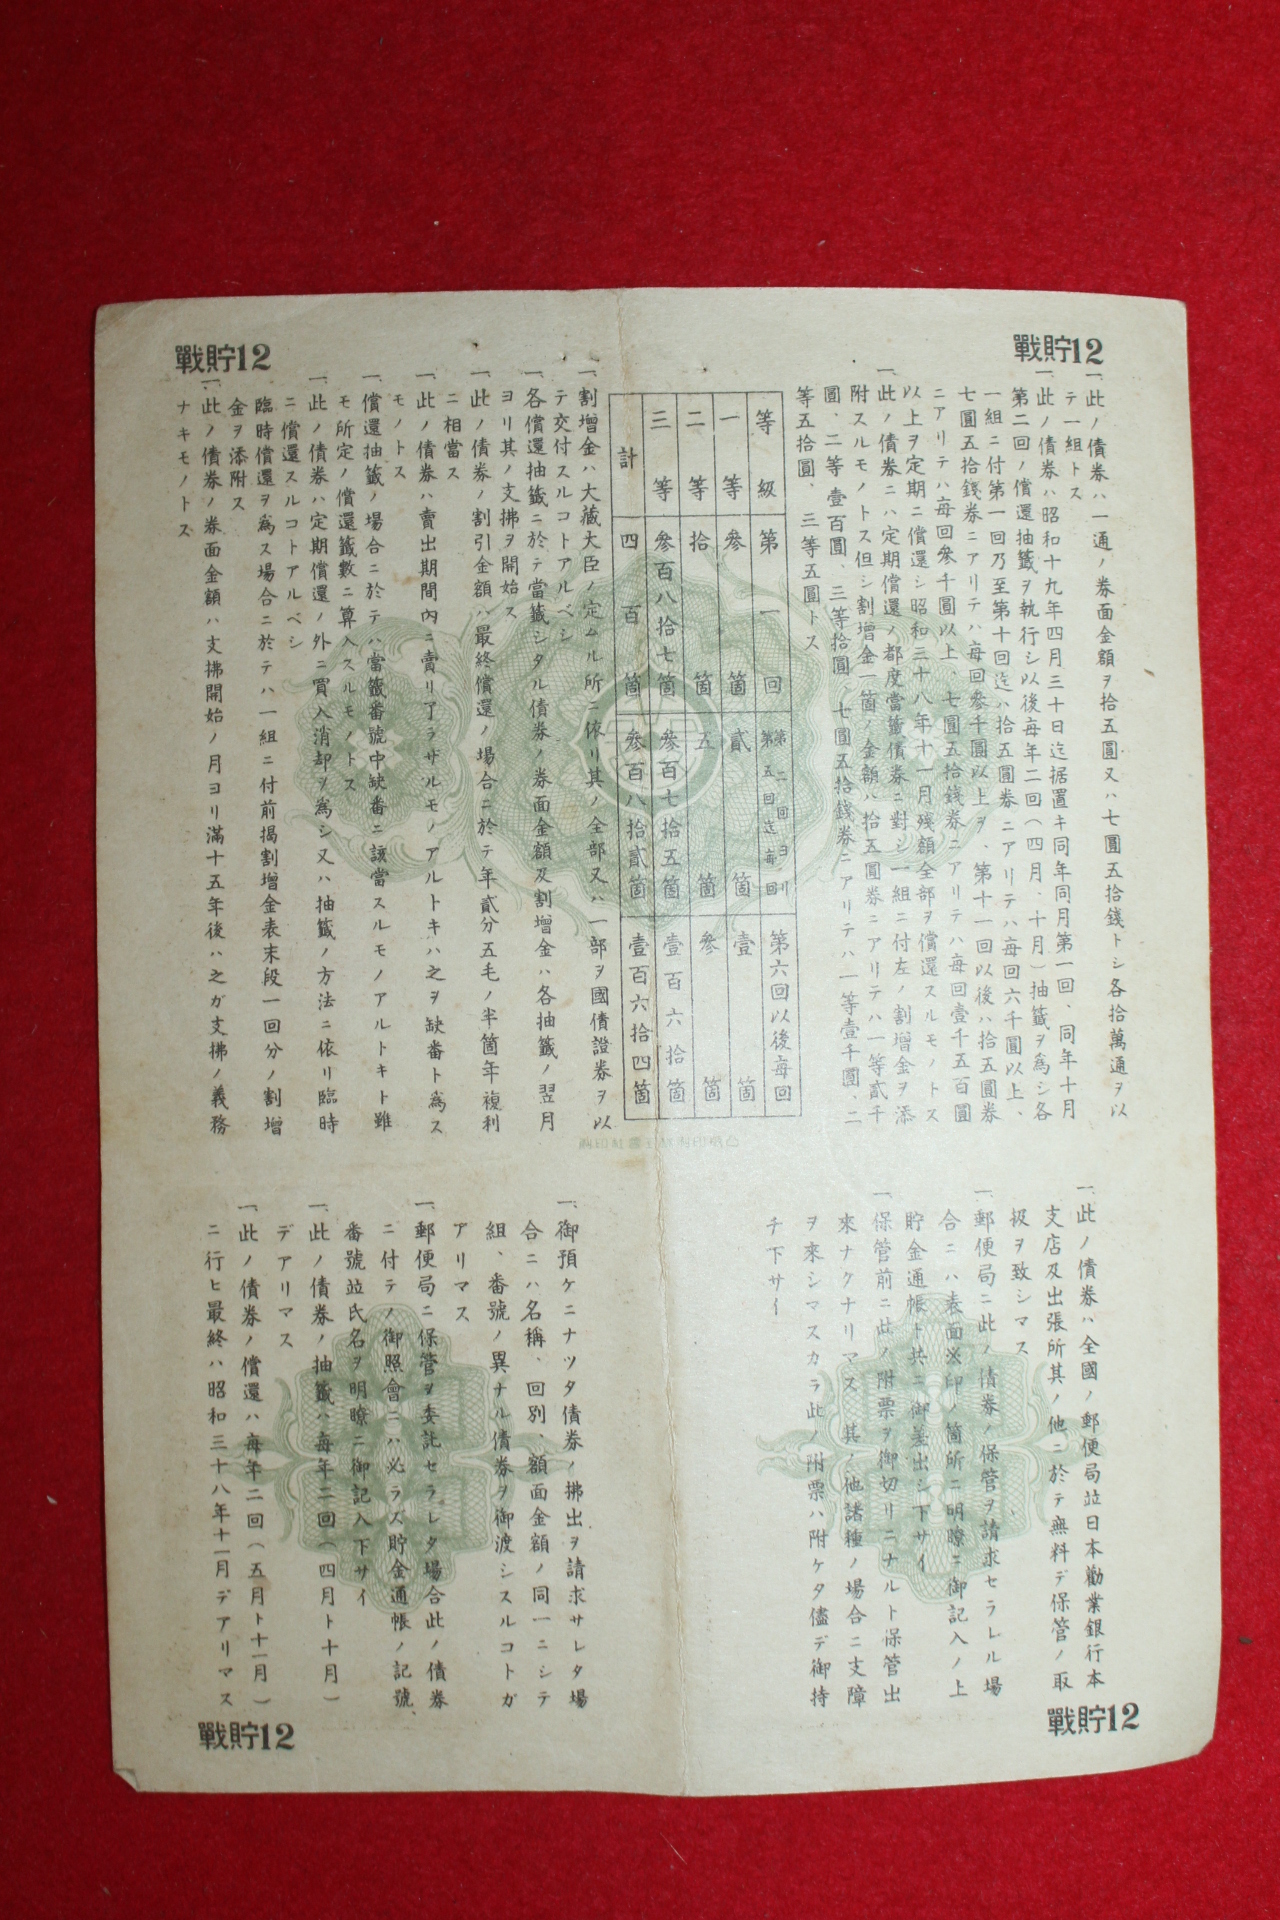 戰貯12
戰貯12
一、此ノ債券ハ一通ノ券面金額ヲ拾五圓又ハ七圓五拾錢トシ各拾萬通ヲ以
テ一組トス
一、此ノ債券ハ昭和十九年四月三十日迄据置キ同年同月第一回、同年十月
第二回ノ償還抽籤ヲ執行シ以後每年二回(四月、十月)抽籤ヲ爲シ各
一組ニ付第一回乃至第十回迄ハ拾五圓券ニアリテハ每回六千圓以上、
七圓五拾錢券ニアリテハ每回參千圓以上ヲ、第十一回以後ハ拾五圓券
ニアリテハ每回參千圓以上、七圓五拾錢券ニアリテハ每回壹千五百圓
以上ヲ定期ニ償還シ昭和三十八年十一月殘額全部ヲ償還スルモノトス
一、此ノ債券ニハ定期償還ノ都度當籤債券ニ對シ一組ニ付左ノ割增金ヲ添
附スルモノトス但シ割增金一箇ノ金額ハ拾五圓券ニアリテハ一等貳千
圓、二等壹百圓、三等拾圓、七圓五拾錢券ニアリテハ一等壹千圓、二
等五拾圓、三等五圓トス
等級 第一回 第二回ヨリ第五回迄每回 第六回以後每回
一等 參箇 貳箇 壹箇
二等 拾箇 五箇 參箇
三等 參百八拾七箇 參百七拾五箇 壹百六拾箇
計 四百箇 參百八拾貳箇 壹百六拾四箇
一、割增金ハ大藏大臣ノ定ムル所ニ依リ其ノ全部又ハ一部ヲ國債證券ヲ以
テ交付スルコトアルベシ
一、各償還抽籤ニ於テ當籤シタル債券ノ券面金額及割增金ハ各抽籤ノ翌月
ヨリ其ノ支拂ヲ開始ス
一、此ノ債券ノ割引金額ハ最終償還ノ場合ニ於テ年貳分五毛ノ半箇年複利
ニ相當ス
一、此ノ債券ハ賣出期間內ニ賣リ了ラザルモノアルトキハ之ヲ缺番ト爲ス
モノトス
一、償還抽籤ノ場合ニ於テハ當籤番號中缺番ニ該當スルモノアルトキト雖
モ所定ノ償還籤數ニ算入スルモノトス
一、此ノ債券ハ定期償還ノ外ニ買入消却ヲ爲シ又ハ抽籤ノ方法ニ依リ臨時
ニ償還スルコトアルベシ
臨時償還ヲ爲ス場合ニ於テハ一組ニ付前揭割增金表末段一回分ノ割增
金ヲ添附ス
一、此ノ債券ノ券面金額ハ支拂開始ノ月ヨリ滿十五年後ハ之ガ支拂ノ義務
ナキモノトス
一、此ノ債券ハ全國ノ郵便局竝日本勸業銀行本
支店及出張所其ノ他ニ於テ無料デ保管ノ取
扱ヲ致シマス
一、郵便局ニ此ノ債券ノ保管ヲ請求セラレル場
合ニハ表面※印ノ箇所ニ明瞭ニ御記入ノ上
貯金通帳ト共ニ御差出シ下サイ
一、保管前ニ此ノ附票ヲ御切リニナルト保管出
來ナクナリマス 其ノ他諸種ノ場合ニ支障
ヲ來シマスカラ此ノ附票ハ附ケタ儘デ御持
チ下サイ
一、御預ケニナツタ債券ノ拂出ヲ請求サレタ場
合ニハ名稱、回別、額面金額ノ同一ニシテ
組、番號ノ異ナル債券ヲ御渡シスルコトガ
アリマス
一、郵便局ニ保管ヲ委託セラレタ場合此ノ債券
ニ付テノ御照會ニハ必ラズ貯金通帳ノ記號
番號竝氏名ヲ明瞭ニ御記入下サイ
一、此ノ債券ノ抽籤ハ每年二回(四月ト十月)
デアリマス
一、此ノ債券ノ償還ハ每年二回(五月ト十一月)
ニ行ヒ最終ハ昭和三十八年十一月デアリマス
戰貯12
戰貯12